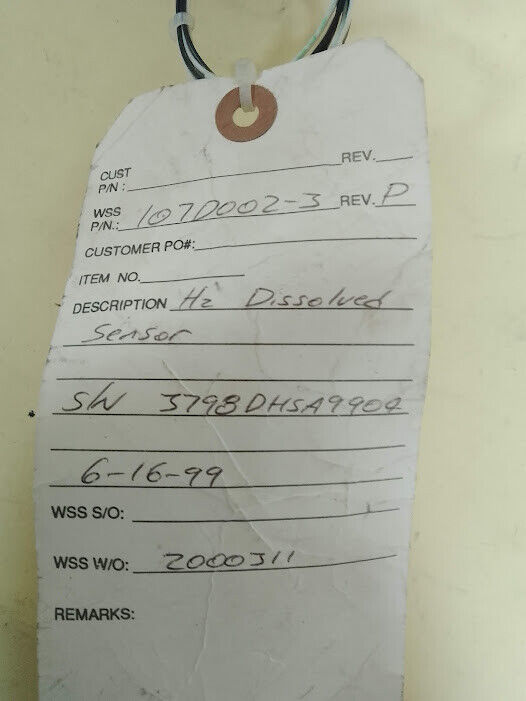 CUST
P/N: REV.
WSS
P/N.: 107D002-3 REV. P
CUSTOMER PO#:
ITEM NO.
DESCRIPTION H2 Dissolved
Sensor
S/N 3798DHSA9904
6-16-99
WSS S/O:
WSS W/O: 2000311
REMARKS: